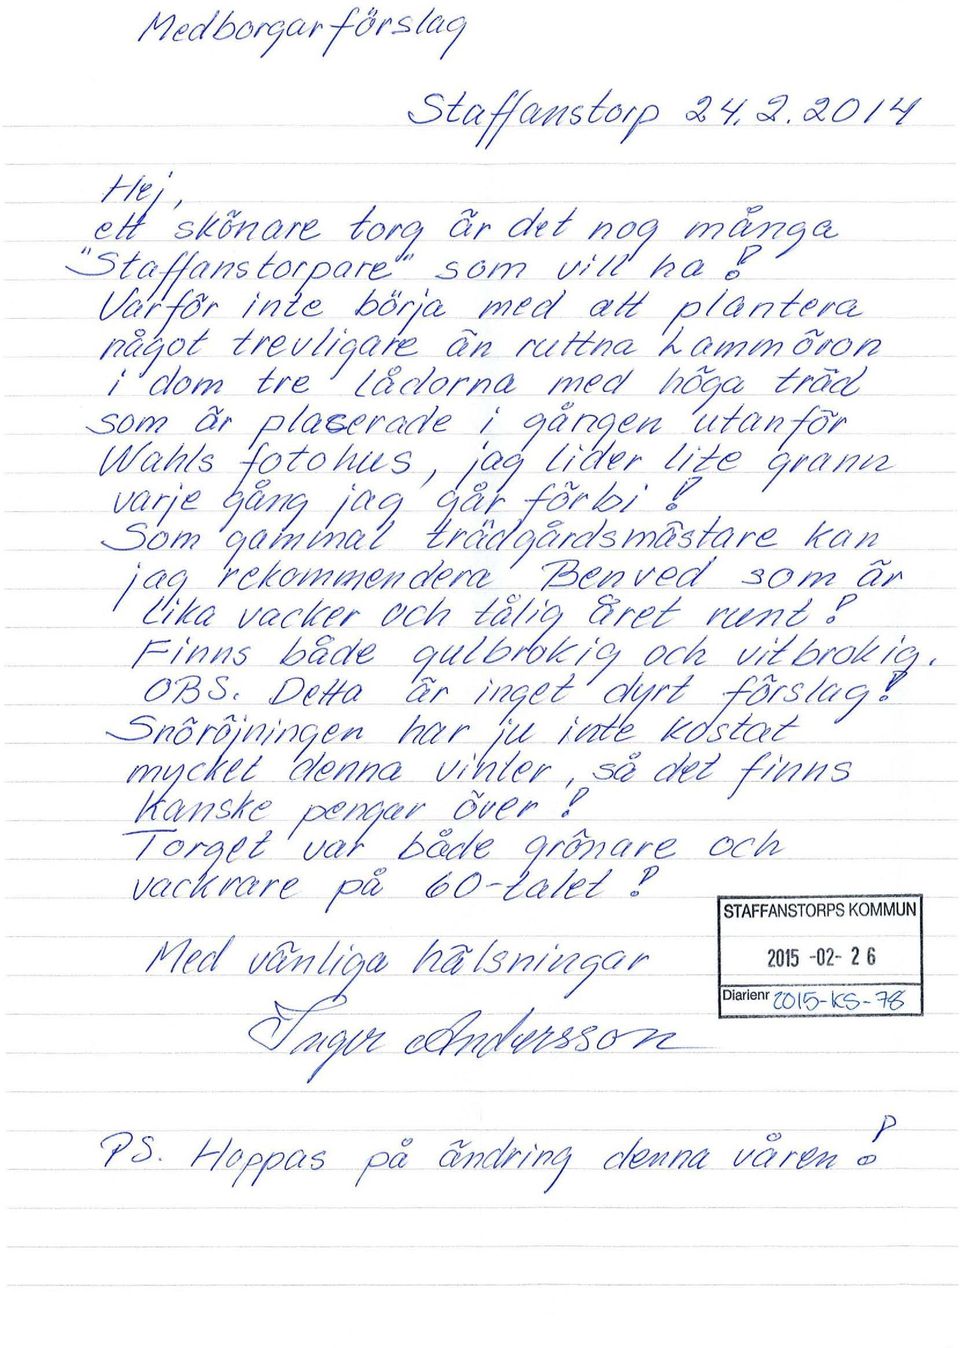 Medborgarförslag
Staffanstorp 24.2.2014
Hej,
ett skönare torg är det nog många
"Staffanstorpare" som vill ha!
Varför inte börja med att plantera
något trevligare än ruttna Lammöron
i dom tre lådorna med höga träd
som är placerade i gången utanför
Wahls fotohus, jag lider lite grann
varje gång jag går förbi!
Som gammal trädgårdsmästare kan
jag rekommendera Benved som är
lika vacker och tålig året runt!
Finns både gulbrokig och vitbrokig.
OBS. Detta är inget dyrt förslag!
Snöröjningen har ju inte kostat
mycket denna vinter, så det finns
kanske pengar över!
Torget var både grönare och
vackrare på 60-talet!
STAFFANSTORPS KOMMUN
2015 -02- 2 6
Diarienr 2015-KS-78
Med vänliga hälsningar
Inger Andersson
PS. Hoppas på ändring denna våren!